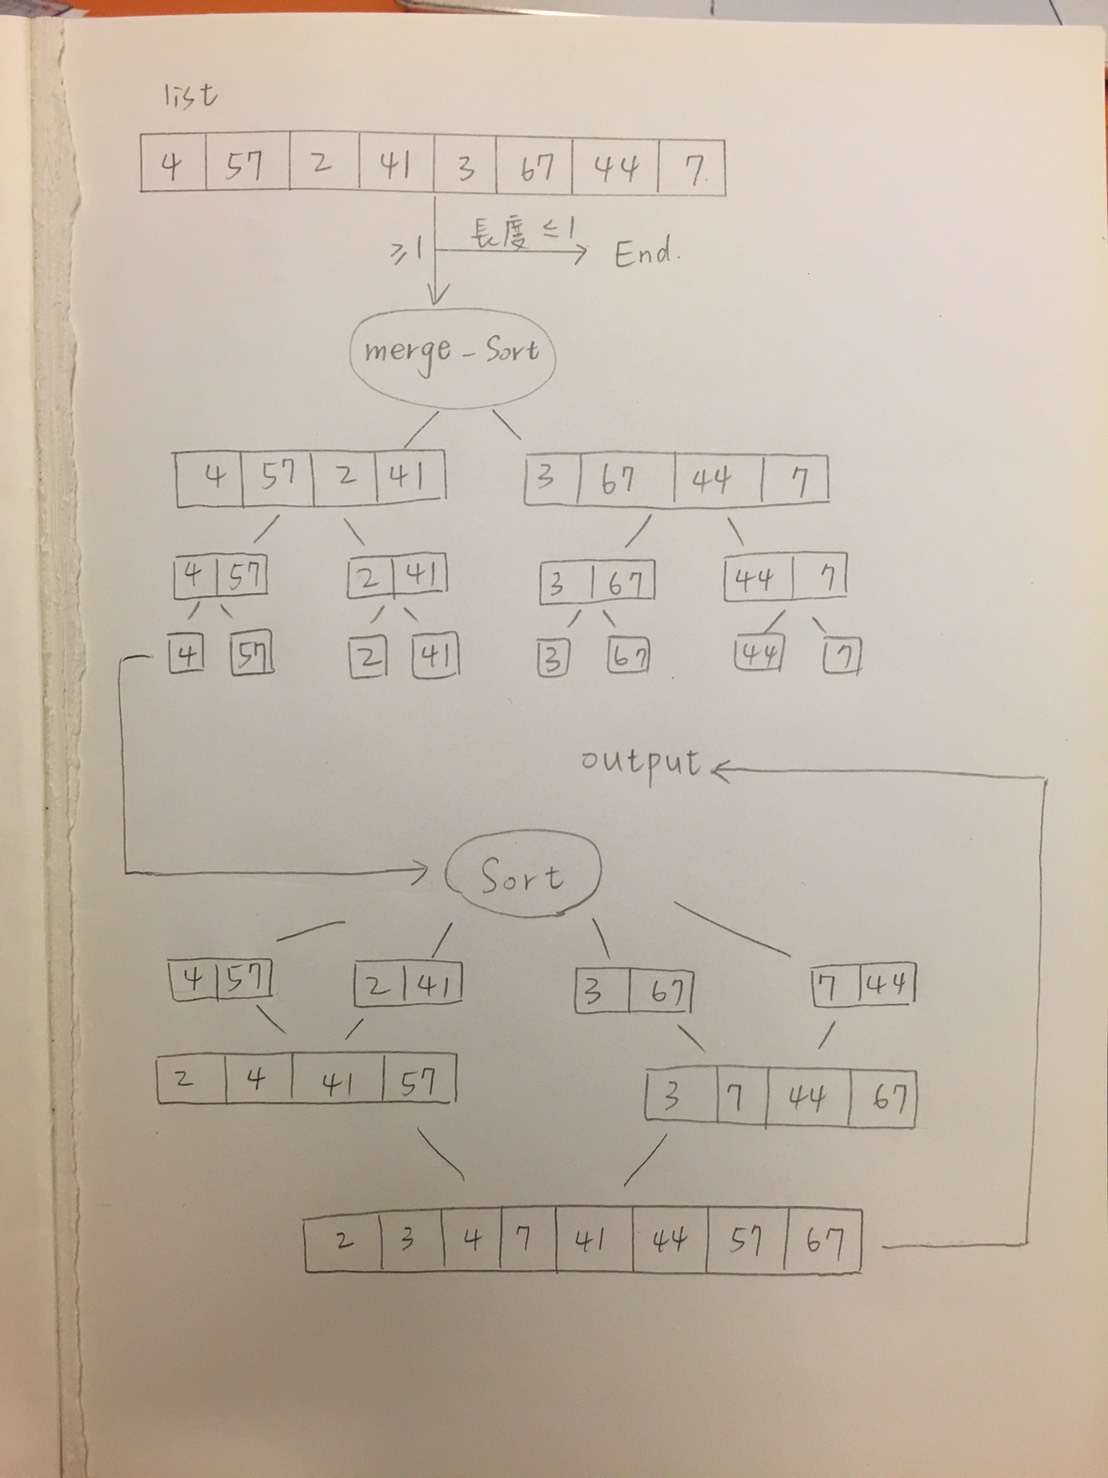 list
4 57 2 41 3 67 44 7
≥1 長度 ≤1 End.
merge-Sort
4 57 2 41 3 67 44 7
4 57 2 41 3 67 44 7
4 57 2 41 3 67 44 7
output
Sort
4 57 2 41 3 67 7 44
2 4 41 57 3 7 44 67
2 3 4 7 41 44 57 67